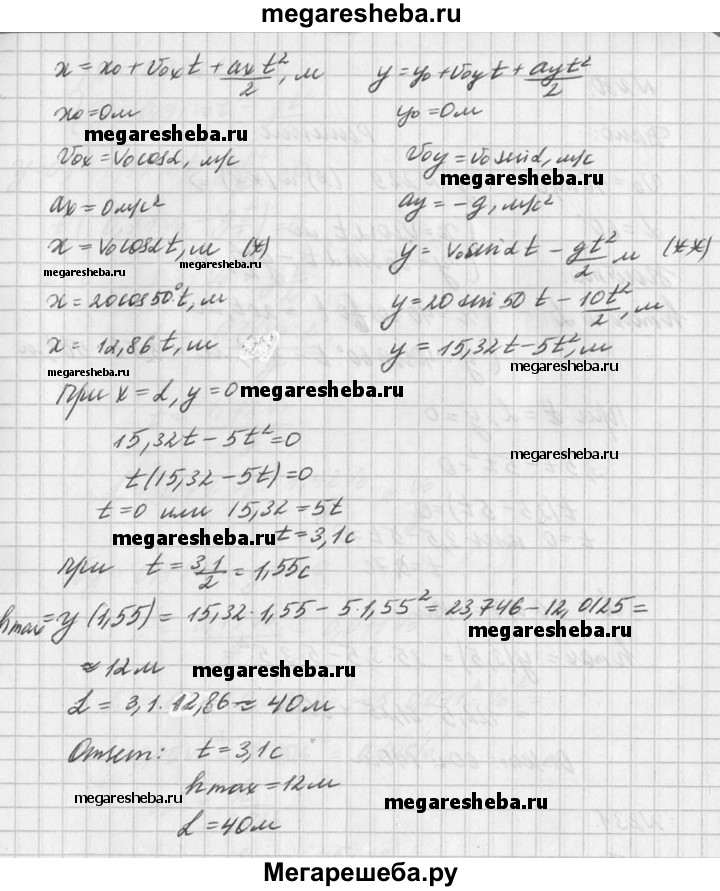 megaresheba.ru
x = x₀ + v₀ₓt + aₓt²/2, м y = y₀ + v₀yt + ayt²/2
x₀ = 0м y₀ = 0м
megaresheba.ru
v₀ₓ = v₀cosα, м/с v₀y = v₀sinα, м/с
megaresheba.ru
aₓ = 0 м/с² ay = -g, м/с²
x = v₀cosα t, м (*) y = v₀sinα t - gt²/2, м (**)
megaresheba.ru
x = 20cos50°t, м y = 20 sin 50 t - 10t²/2, м
x = 12,86 t, м y = 15,32t - 5t², м
megaresheba.ru megaresheba.ru
при x = L, y = 0 megaresheba.ru
15,32t - 5t² = 0
megaresheba.ru
t(15,32 - 5t) = 0
t = 0 или 15,32 = 5t
megaresheba.ru t = 3,1с megaresheba.ru
при t = 3,1/2 = 1,55с
hmax = y(1,55) = 15,32·1,55 - 5·1,55² = 23,746 - 12,0125 =
megaresheba.ru
≈ 12м megaresheba.ru
L = 3,1·12,86 ≈ 40м
Ответ: t = 3,1с
hmax = 12м
megaresheba.ru megaresheba.ru
L = 40м
Мегарешеба.ру